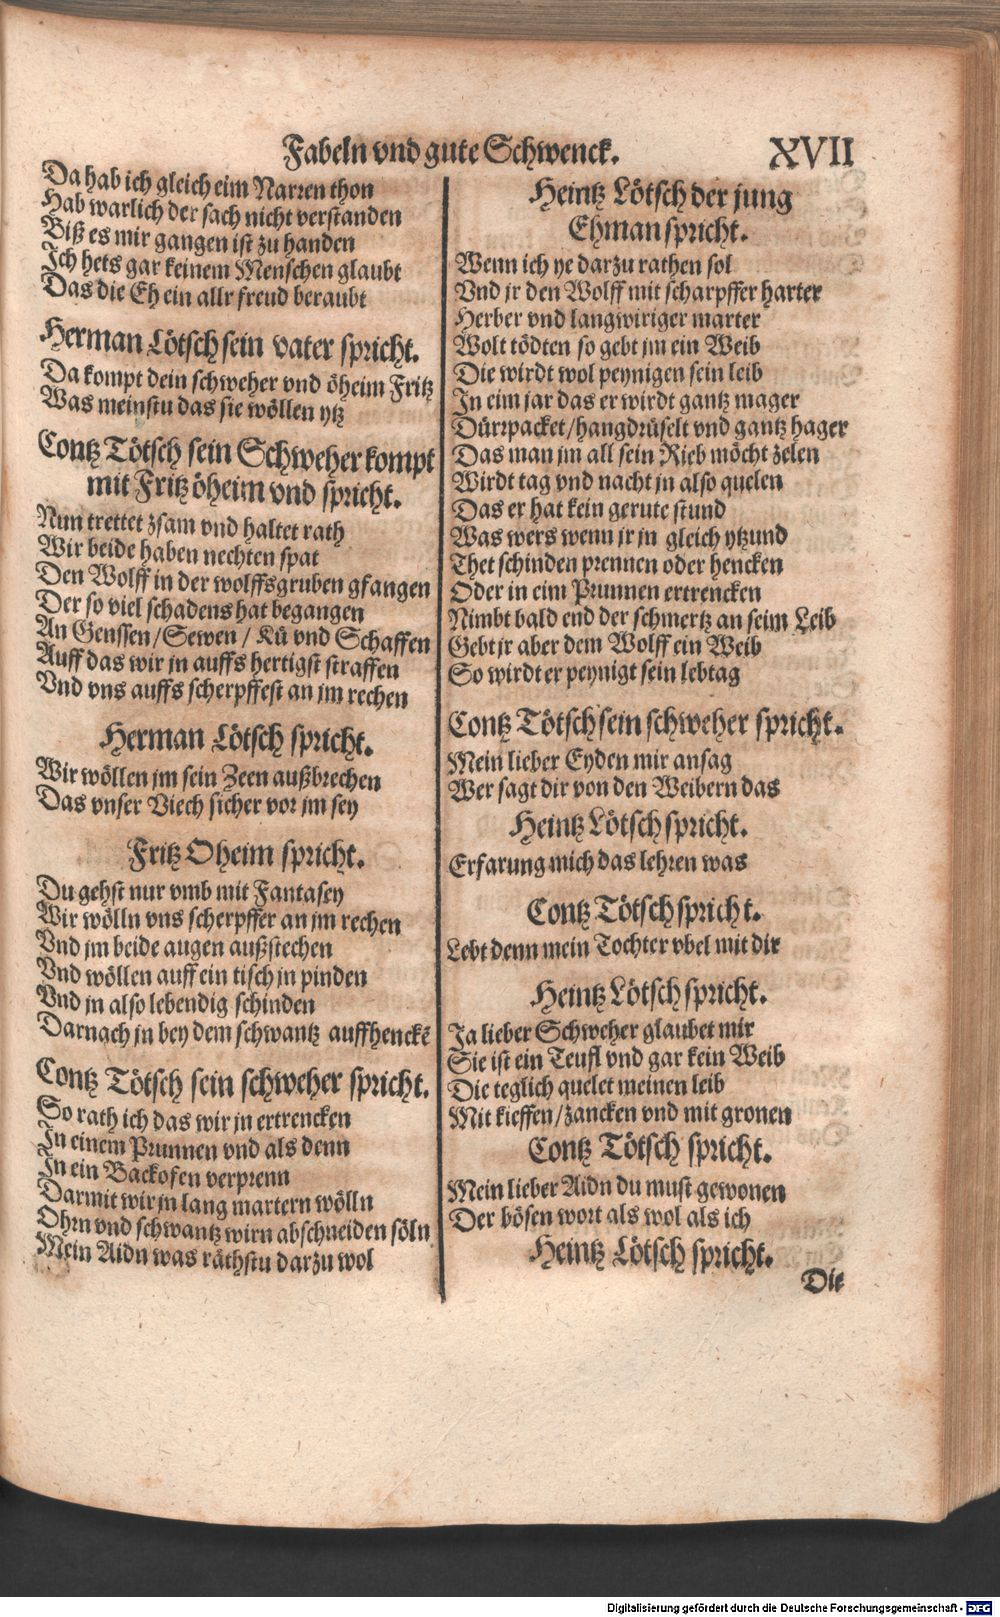 Fabeln vnd gute Schwenck. XVII
Da hab ich gleich eim Narren thon
Hab warlich der sach nicht verstanden
Biß es mir gangen ist zu handen
Ich hets gar keinem Menschen glaubt
Das die Eh ein allr freud beraubt
Herman Lötsch sein vater spricht.
Da kompt dein schweher vnd öheim Fritz
Was meinstu das sie wöllen ytz
Contz Tötsch sein Schweher kompt
mit Fritz öheim vnd spricht.
Nun trettet zsam vnd haltet rath
Wir beide haben nechten spat
Den Wolff in der wolffsgruben gfangen
Der so viel schadens hat begangen
An Genssen/Sewen/ Kü vnd Schaffen
Auff das wir jn auffs hertigst straffen
Vnd vns auffs scherpffest an jm rechen
Herman Lötsch spricht.
Wir wöllen jm sein Zeen außbrechen
Das vnser Viech sicher vor jm sey
Fritz Oheim spricht.
Du gehst nur vmb mit Fantasey
Wir wölln vns scherpffer an jm rechen
Vnd jm beide augen außstechen
Vnd wöllen auff ein tisch jn pinden
Vnd jn also lebendig schinden
Darnach jn bey dem schwantz auffhenckẽ
Contz Tötsch sein schweher spricht.
So rath ich das wir jn ertrencken
In einem Prunnen vnd als denn
In ein Backofen verprenn
Darmit wir jn lang martern wölln
Ohrn vnd schwantz wirn abschneiden söln
Mein Aidn was räthstu darzu wol
Heintz Lötsch der jung
Ehman spricht.
Wenn ich ye darzu rathen sol
Vnd jr den Wolff mit scharpffer harter
Herber vnd langwiriger marter
Wolt tödten so gebt jm ein Weib
Die wirdt wol peynigen sein leib
In eim jar das er wirdt gantz mager
Dürrpacket/hangdrüselt vnd gantz hager
Das man jm all sein Rieb möcht zelen
Wirdt tag vnd nacht jn also quelen
Das er hat kein gerute stund
Was wers wenn jr jn gleich ytzund
Thet schinden prennen oder hencken
Oder in eim Prunnen ertrencken
Nimbt bald end der schmertz an seim Leib
Gebt jr aber dem Wolff ein Weib
So wirdt er peynigt sein lebtag
Contz Tötsch sein schweher spricht.
Mein lieber Eyden mir ansag
Wer sagt dir von den Weibern das
Heintz Lötsch spricht.
Erfarung mich das lehren was
Contz Tötsch spricht.
Lebt denn mein Tochter vbel mit dir
Heintz Lötsch spricht.
Ja lieber Schweher glaubet mir
Sie ist ein Teufl vnd gar kein Weib
Die teglich quelet meinen leib
Mit kieffen/zancken vnd mit gronen
Contz Tötsch spricht.
Mein lieber Aidn du must gewonen
Der bösen wort als wol als ich
Heintz Lötsch spricht.
Die
Digitalisierung gefördert durch die Deutsche Forschungsgemeinschaft - DFG